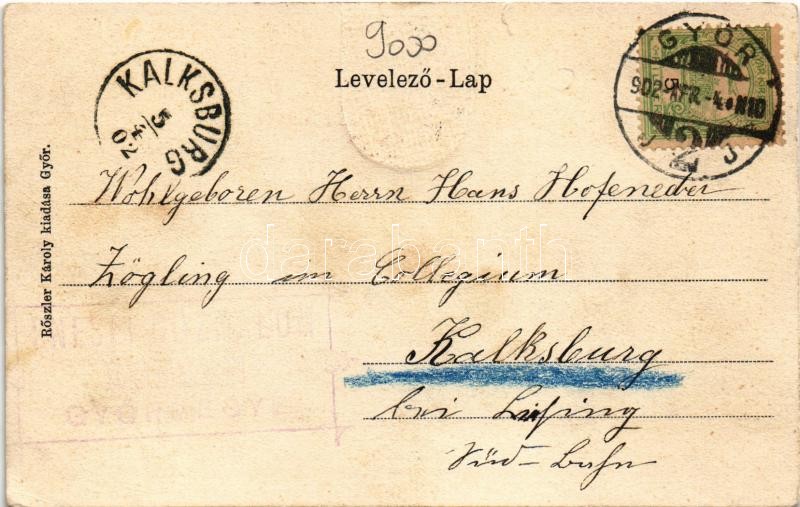 9000
Levelező - Lap
KALKSBURG
5
4
02
GYŐR
902 APR. - 4.
2
Wohlgeboren Herrn Hans Hofeneder
Zögling im Collegium
Kalksburg
bei Liesing
Süd-Bahn
Rőszler Károly kiadása Győr.
darabanth